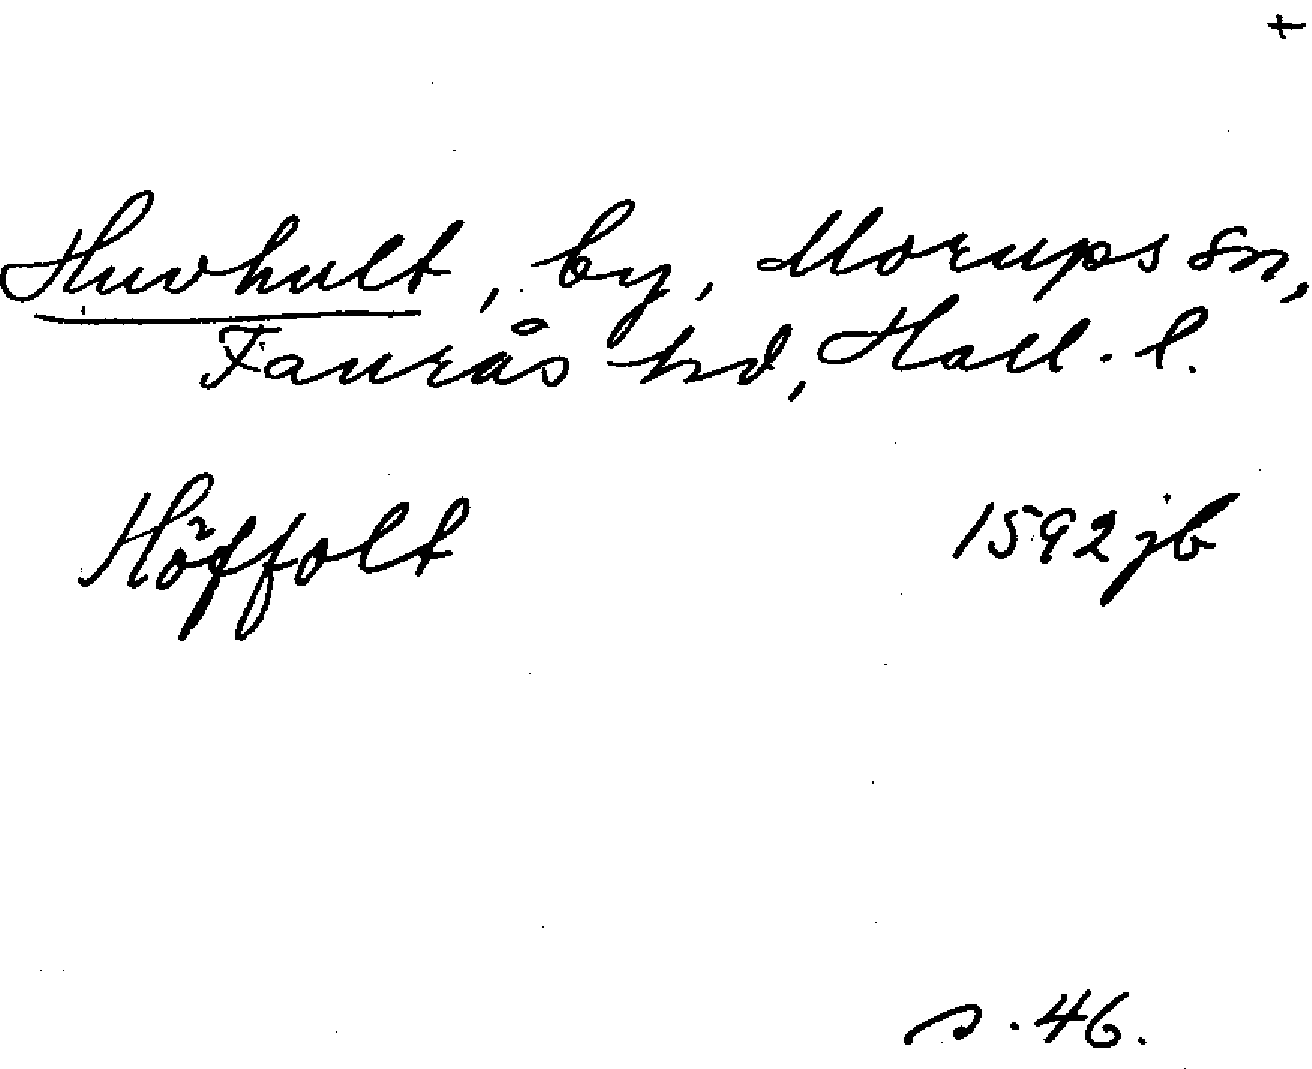 +
Huvhult, by, Morups sn,
Faurås hd, Hall. l.
Höffolt 1592 jb
s. 46.